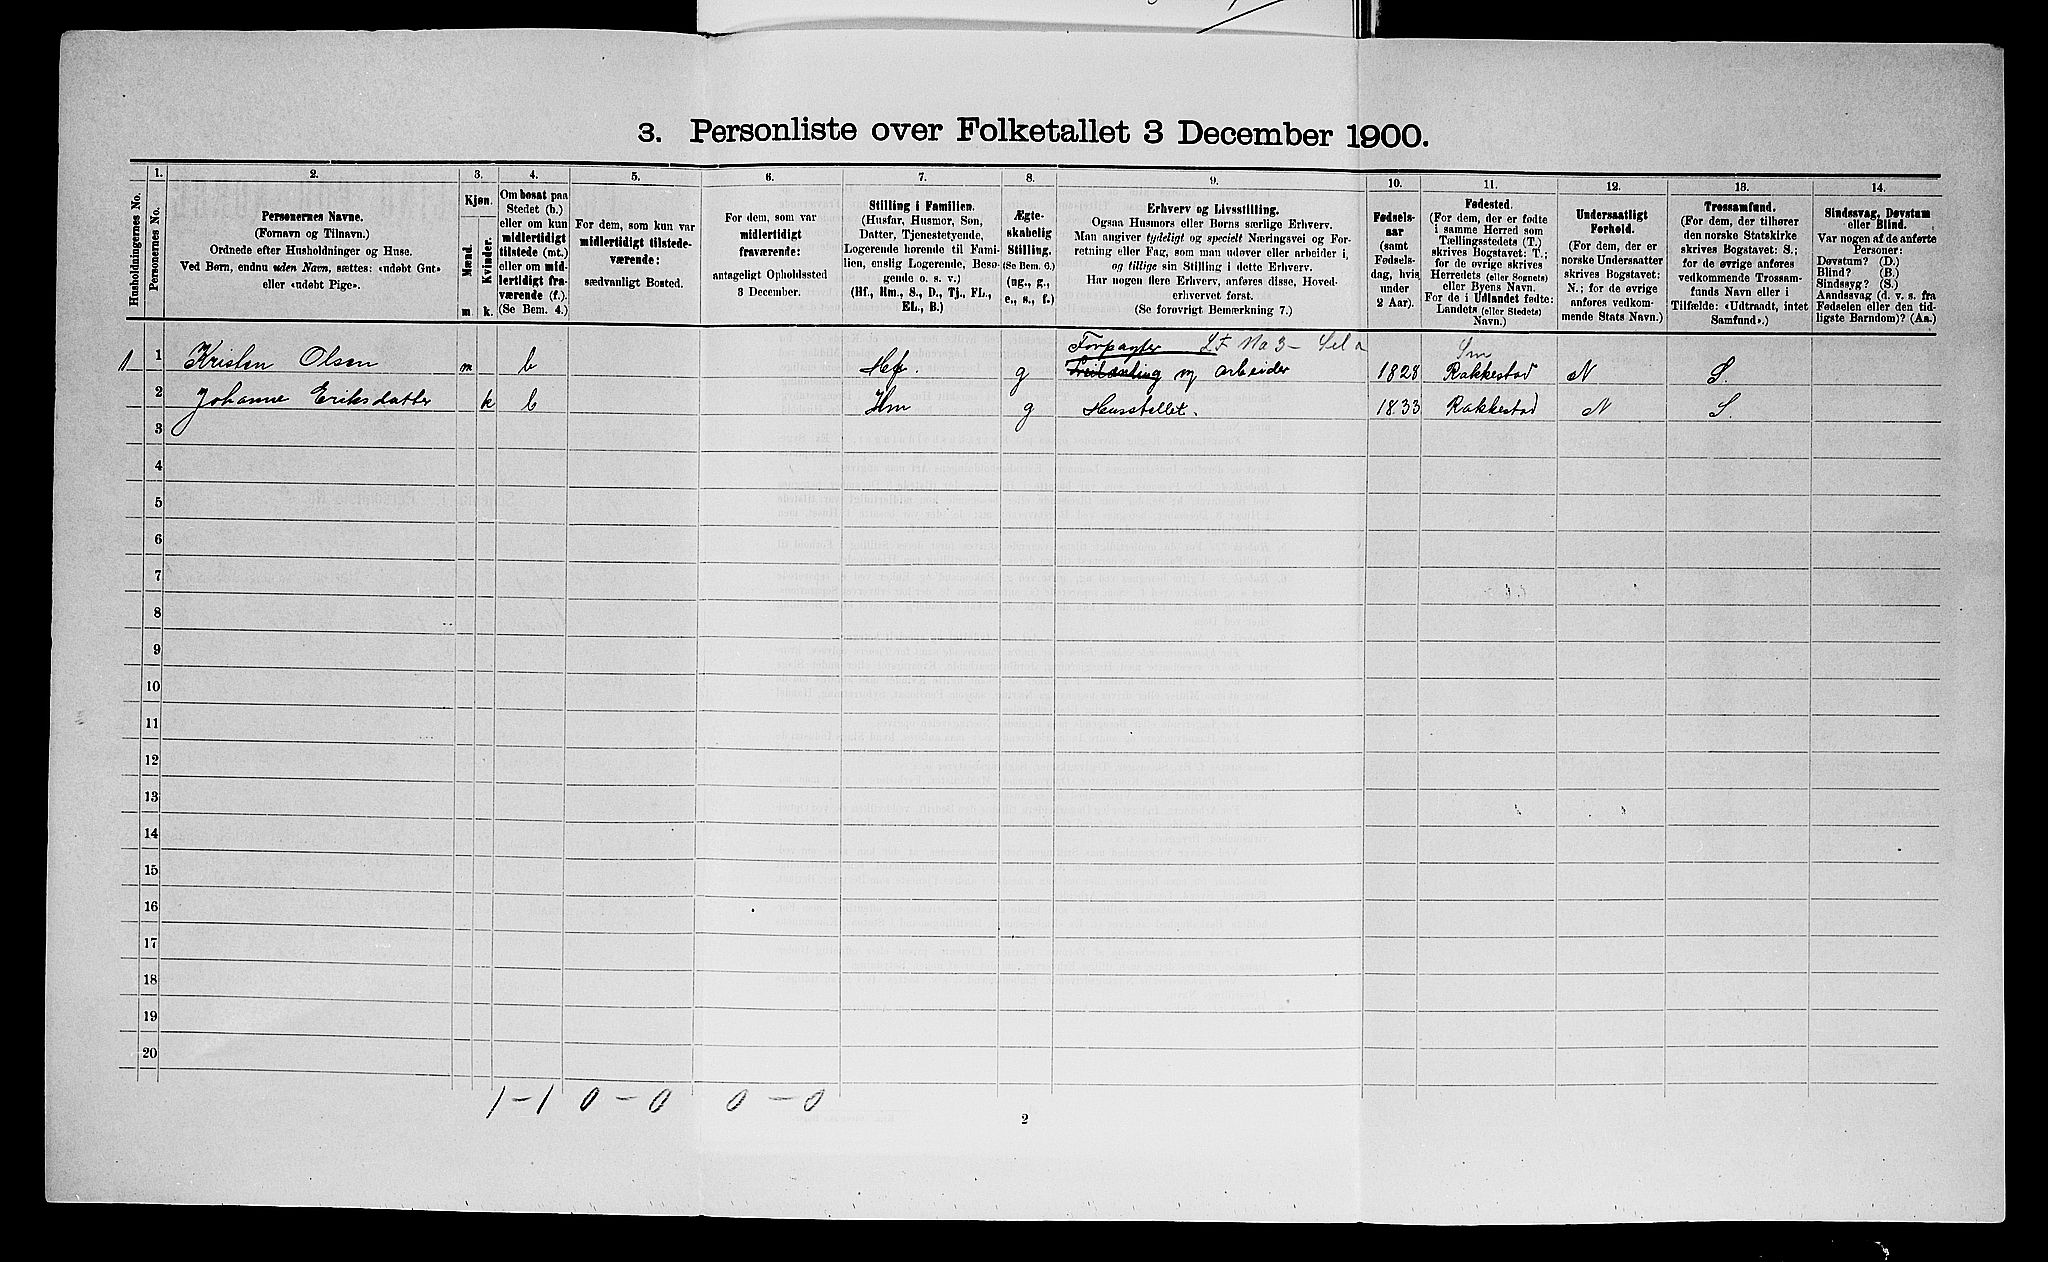 3. Personliste over Folketallet 3 December 1900.
Husholdningernes No.
1.
Personernes No.
2.
Personernes Navne.
(Fornavn og Tilnavn.)
Ordnede efter Husholdninger og Huse.
Ved Børn, endnu uden Navn, sættes: «udøbt Gut»
eller «udøbt Pige».
3.
Kjøn.
Mænd.
Kvinder.
m. k.
4.
Om bosat paa
Stedet (b.)
eller om kun
midlertidigt
tilstede (mt.)
eller om mid-
lertidigt fra-
værende (f.).
(Se Bem. 4.)
5.
For dem, som kun var
midlertidigt tilstede-
værende:
sædvanligt Bosted.
6.
For dem, som var
midlertidigt
fraværende:
antageligt Opholdssted
3 December.
7.
Stilling i Familien.
(Husfar, Husmor, Søn,
Datter, Tjenestetyende,
Logerende hørende til Fami-
lien, enslig Logerende, Besø-
gende o. s. v.)
(Hf., Hm., S., D., Tj., FL.,
EL., B.)
8.
Ægte-
skabelig
Stilling.
(Se Bem. 6.)
(ug., g.,
e., s., f.)
9.
Erhverv og Livsstilling.
Ogsaa Husmors eller Børns særlige Erhverv.
Man angiver tydeligt og specielt Næringsvei og For-
retning eller Fag, som man udøver eller arbeider i,
og tillige sin Stilling i dette Erhverv.
Har nogen flere Erhverv, anføres disse, Hoved-
erhvervet først.
(Se forøvrigt Bemærkning 7.)
10.
Fødsels-
aar
(samt
Fødsels-
dag, hvis
under
2 Aar).
11.
Fødested.
(For dem, der er fødte
i samme Herred som
Tællingsstedets (T.)
skrives Bogstavet: T.;
for de øvrige skrives
Herredets (eller Sognets)
eller Byens Navn.
For de i Udlandet fødte:
Landets (eller Stedets)
Navn.)
12.
Undersaatligt
Forhold.
(For dem, der er
norske Undersaatter
skrives Bogstavet:
N.; for de øvrige
anføres vedkom-
mende Stats Navn.)
13.
Trossamfund.
(For dem, der tilhører
den norske Statskirke
skrives Bogstavet: S.;
for de øvrige anføres
vedkommende Trossam-
funds Navn eller i
Tilfælde: «Udtraadt, intet
Samfund».)
14.
Sindssvag, Døvstum
eller Blind.
Var nogen af de anførte
Personer:
Døvstum? (D.)
Blind? (B.)
Sindssyg? (S.)
Aandssvag (d. v. s. fra
Fødselen eller den tid-
ligste Barndom)? (Aa.)
Forpagter Lf No 3 - Sm
1 1 Kristen Olsen m b Hf. g og arbeider 1828 Rakkestad N S.
2 Johanne Eriksdatter k b Hm g Husstellet. 1833 Rakkestad N S.
3
4
5
6
7
8
9
10
11
12
13
14
15
16
17
18
19
20
1-1 0-0 0-0
2